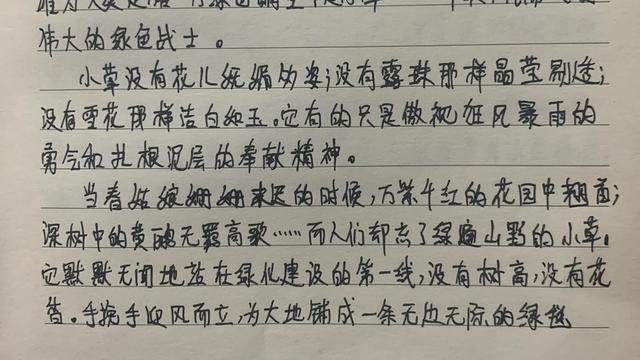 伟大的绿色战士。
小草没有花儿妩媚的姿;没有露珠那样晶莹剔透;
没有雪花那样洁白如玉。它有的只是傲视狂风暴雨的
勇气和扎根泥层的奉献精神。
当春姑娘姗姗来迟的时候,万紫千红的花园中翘首;
深树中的黄鹂无 高歌……而人们却忘了绿遍山野的小草。
它默默无闻地站在绿化建设的第一线,没有树高,没有花
香。手挽手迎风而立,为大地铺成一条无边无际的绿毯